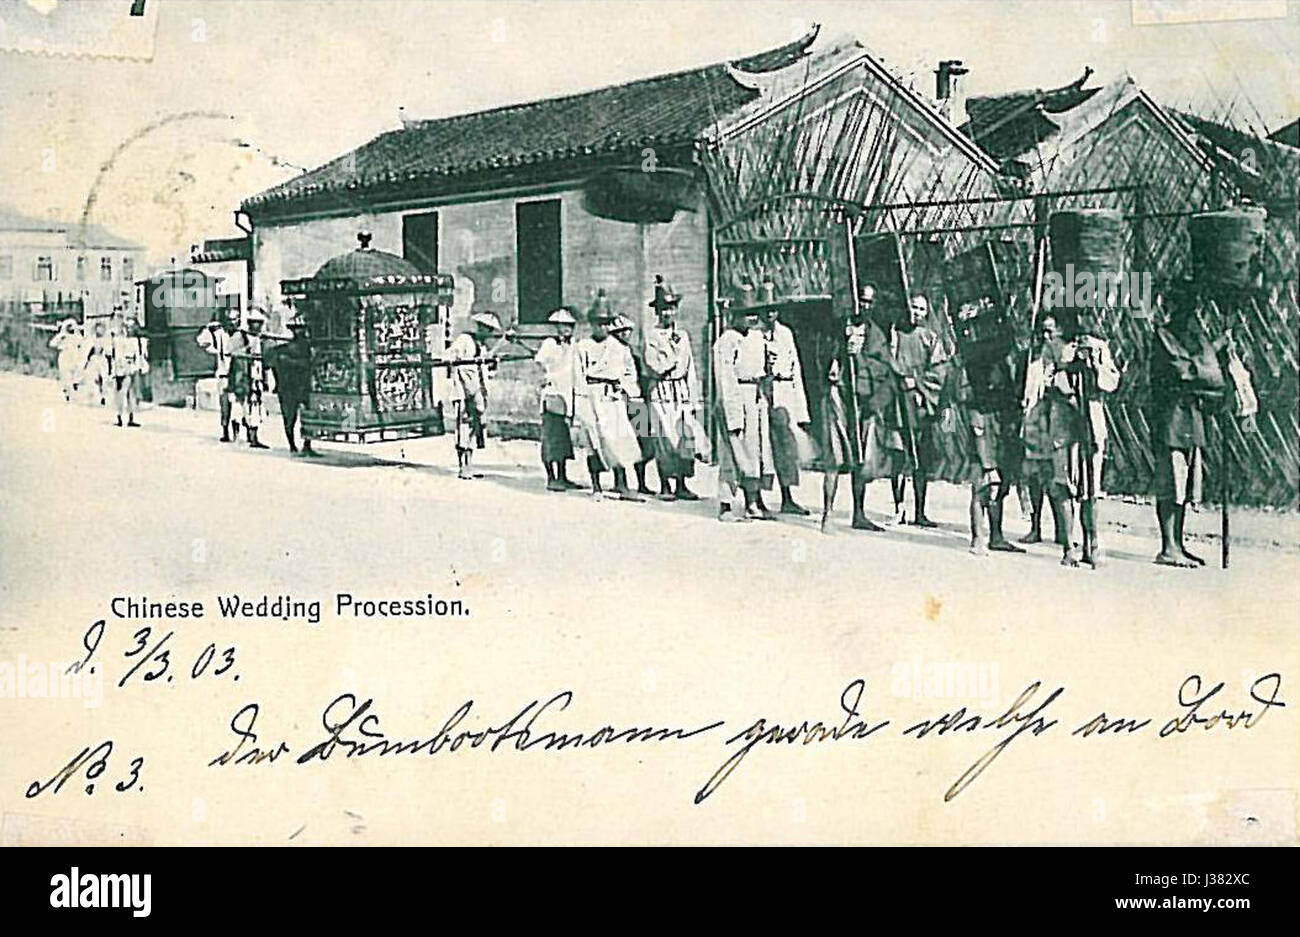 7
Chinese Wedding Procession.
d. 3/3. 03.
der Bumbootsmann gerade welche an Bord
No. 3.
alamy
Image ID: J382XC
www.alamy.com